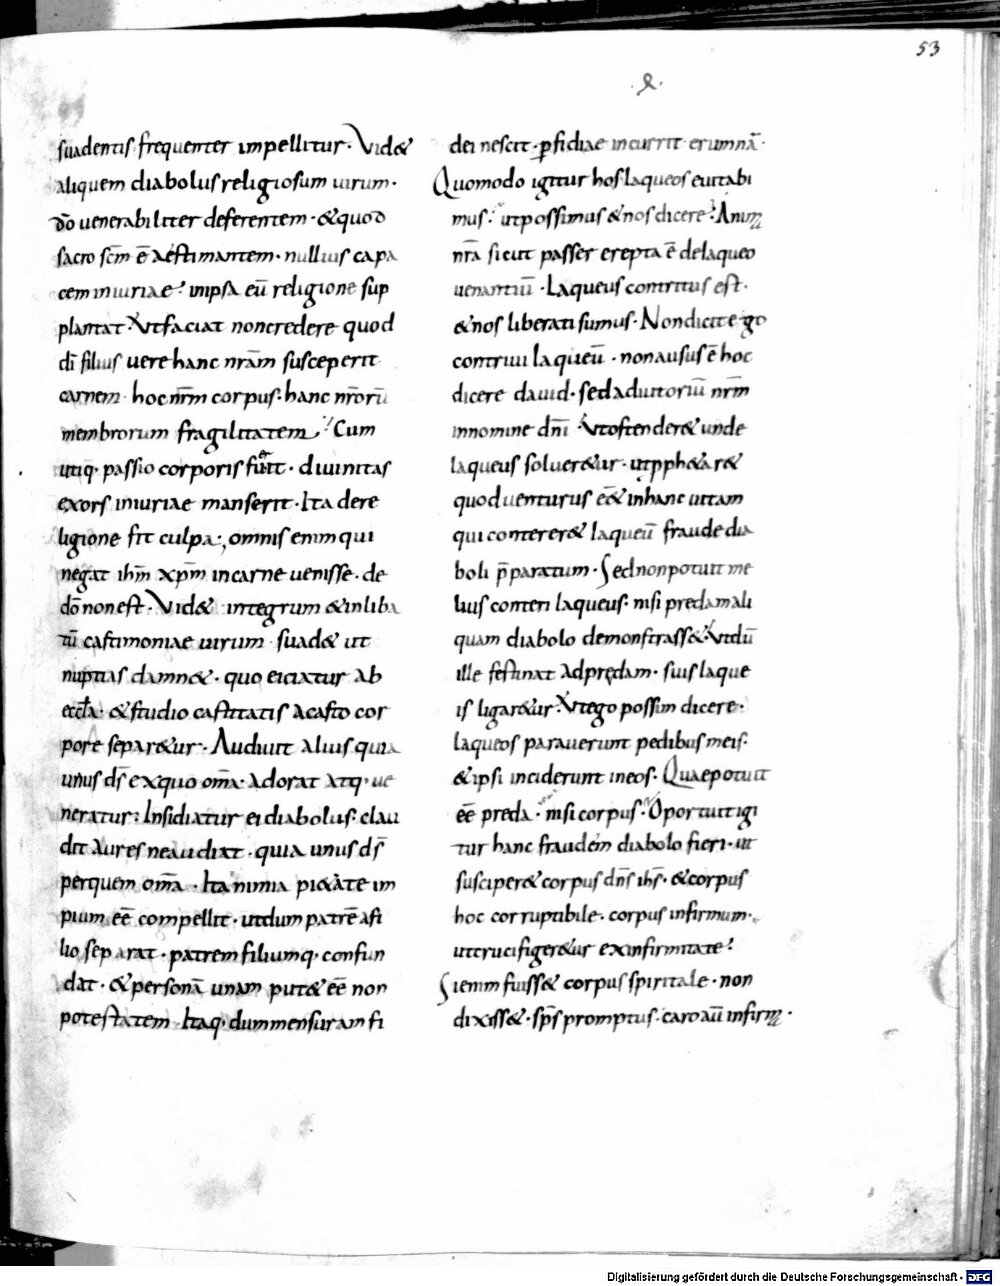 53
suadentis frequenter impellitur. Vid&
aliquem diabolus religiosum uirum.
dō uenerabiliter deferentem. & quod
sacro scm̄ ē aestimantem. nullius capa
cem iniuriae. inipsa eū religione sup
plantat Ut faciat non credere quod
dī filius uere hanc nrām susceperit
carnem. hoc nr̄m corpus. hanc nr̄orū
membrorum fragilitatem. Cum
utiq. passio corporis fuerit. diuinitas
exors iniuriae manserit. Ita dere
ligione fit culpa., omnis enim qui
negat ihm̄ xpm̄ in carne uenisse. de
dō non est. Vid& integrum & inliba
tū castimoniae uirum. suad& ut
nuptias damn&. quo eiciatur ab
eccła. & studio castitatis a casto cor
pore separ&ur. Audiuit alius quia
unus ds̄ ex quo om̄a. adorat atq. ue
neratur: Insidiatur ei diabolus. clau
dit aures ne audiat. quia unus ds̄
per quem om̄a. Ita nimia pi&ate im
pium eē compellit. ut dum patrē afi
lio separat. patrem filiumq. confun
dat. & personā unam put& eē non
potestatem. Itaq. dum mensuram fi
dei nescit. pfidiae incurrit erumnā.
Quomodo igitur hos laqueos euitabi
mus. ut possimus & nos dicere. Anim
nr̄a sicut passer erepta ē delaqueo
uenantiū. Laqueus contritus est.
& nos liberati sumus. Non dicit ego
contriui laqueū. non ausus ē hoc
dicere dauid. sed adiutoriū nr̄m
in nomine dn̄i Ut ostender& unde
laqueus soluer&ur. ut pph&ar&
quod uenturus eē& in hanc uitam
qui conterer& laqueū fraude dia
boli p̄paratum. Sed non potuit me
lius conteri laqueus. nisi predam ali
quam diabolo demonstrass& Ut dū
ille festinat ad prędam. suis laque
is ligar&ur. Ut ego possim dicere.
laqueos parauerunt pedibus meis.
& ipsi inciderunt in eos. Quae potuit
eē preda. nisi corpus. Oportuit igi
tur hanc fraudem diabolo fieri. ut
susciper& corpus dn̄s ihs̄. & corpus
hoc corruptibile. corpus infirmum.
ut crucifiger&ur ex infirmitate.
Si enim fuiss& corpus spiritale. non
dixiss&. sps̄ promptus. caro aū infirm.
Digitalisierung gefördert durch die Deutsche Forschungsgemeinschaft - DFG